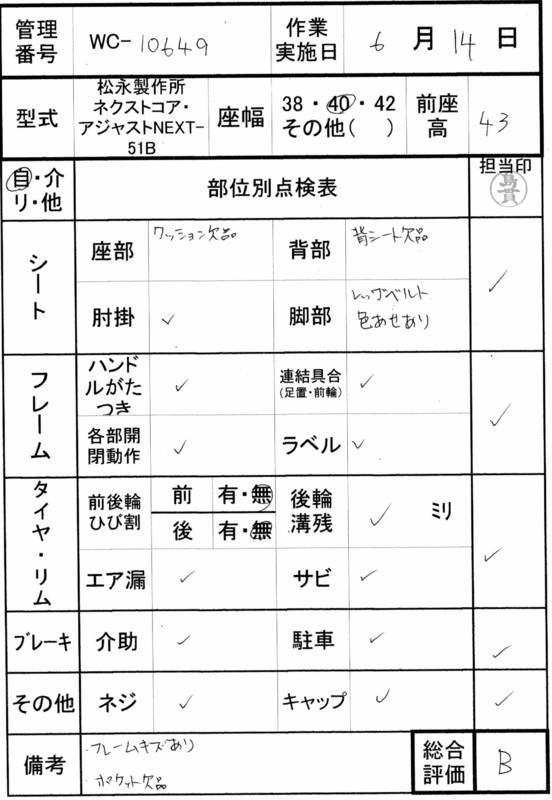 管理番号 WC-10649 作業実施日 6月14日
型式 松永製作所 ネクストコア・アジャストNEXT-51B 座幅 38・40・42 その他( ) 前座高 43
自・介 リ・他 部位別点検表 担当印 島貫
シート 座部 クッション欠品 背部 背シート欠品 ✓
肘掛 ✓ 脚部 レッグベルト 色あせあり
フレーム ハンドルがたつき ✓ 連結具合 (足置・前輪) ✓ ✓
各部開閉動作 ✓ ラベル ✓
タイヤ・リム 前後輪ひび割 前 有・無 後輪溝残 ✓ ミリ ✓
後 有・無
エア漏 ✓ サビ ✓
ブレーキ 介助 ✓ 駐車 ✓ ✓
その他 ネジ ✓ キャップ ✓ ✓
備考 ・フレームキズあり 総合評価 B
・ポケット欠品